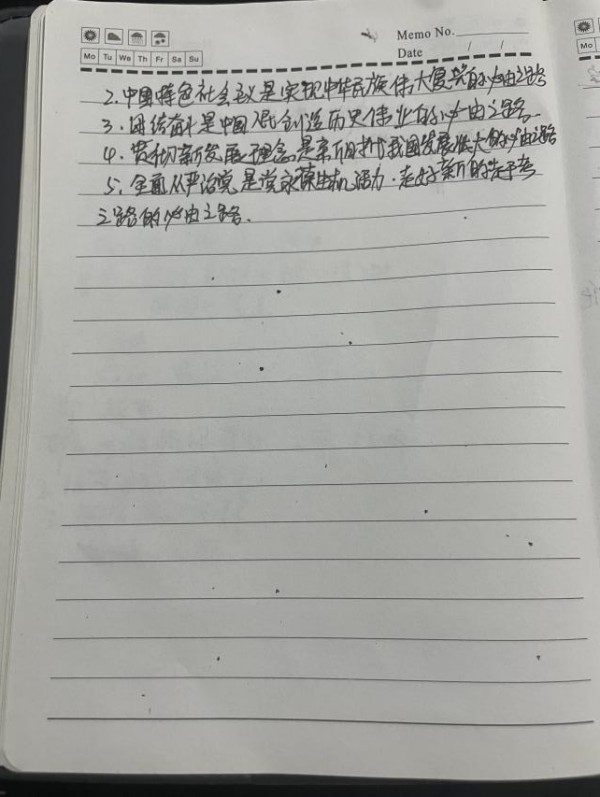 Memo No.
Mo Tu We Th Fr Sa Su
Date / /
2. 中国特色社会主义是实现中华民族伟大复兴的必由之路
3. 团结奋斗是中国人民创造历史伟业的必由之路.
4. 贯彻新发展理念是新时代我国发展壮大的必由之路
5. 全面从严治党是党永葆生机活力. 走好新的赶考
之路的必由之路.
Mo